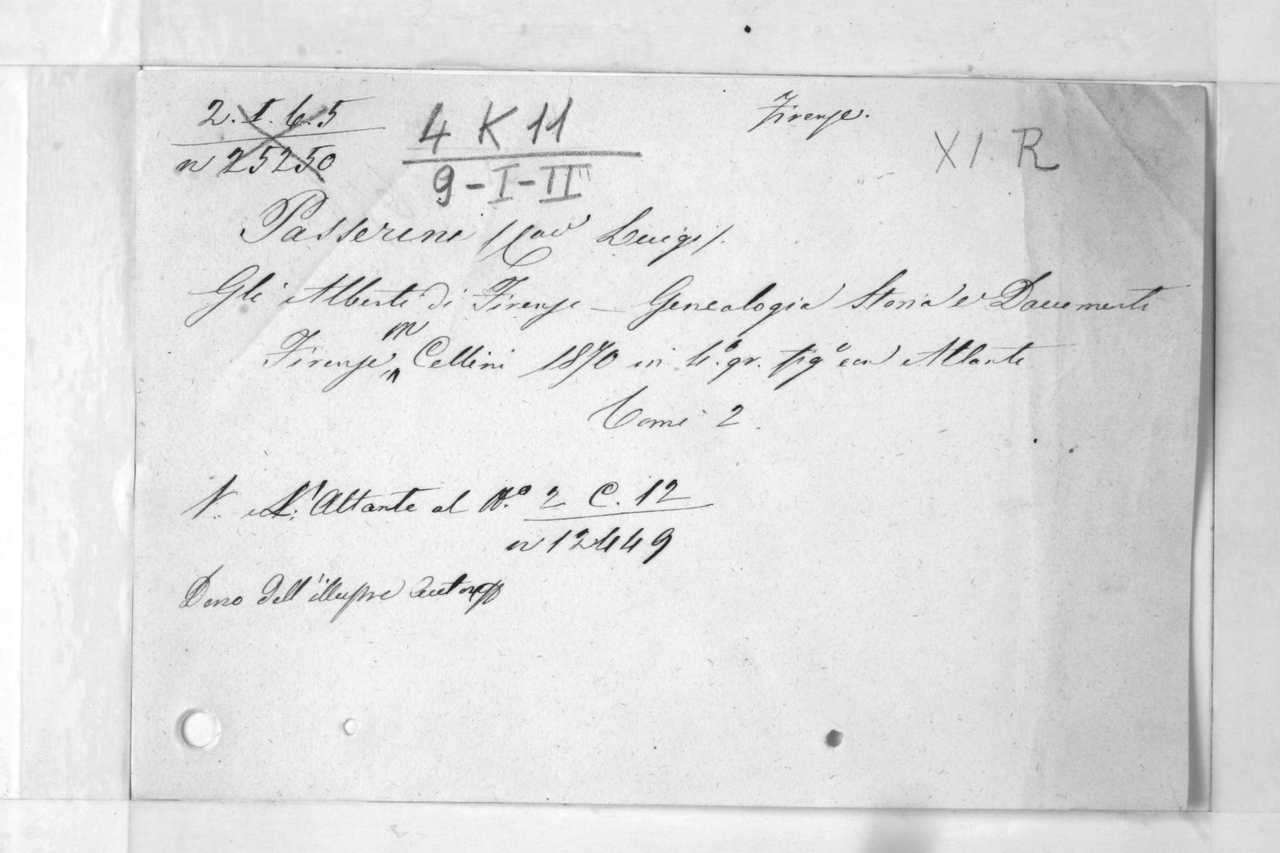 2. I. 6. 5
n 25250
4 K 11
9-I-II
Firenze.
XI. R
Passerini (Cav Luigi).
Gli Alberti di Firenze — Genealogia Storia e Documenti
Firenze, M Cellini 1870 in 4.º gr. figº con Atlante
Tomi 2.
N. L'Atlante al N.º 2 C. 12
n 12449
Dono dell'illustre Autore